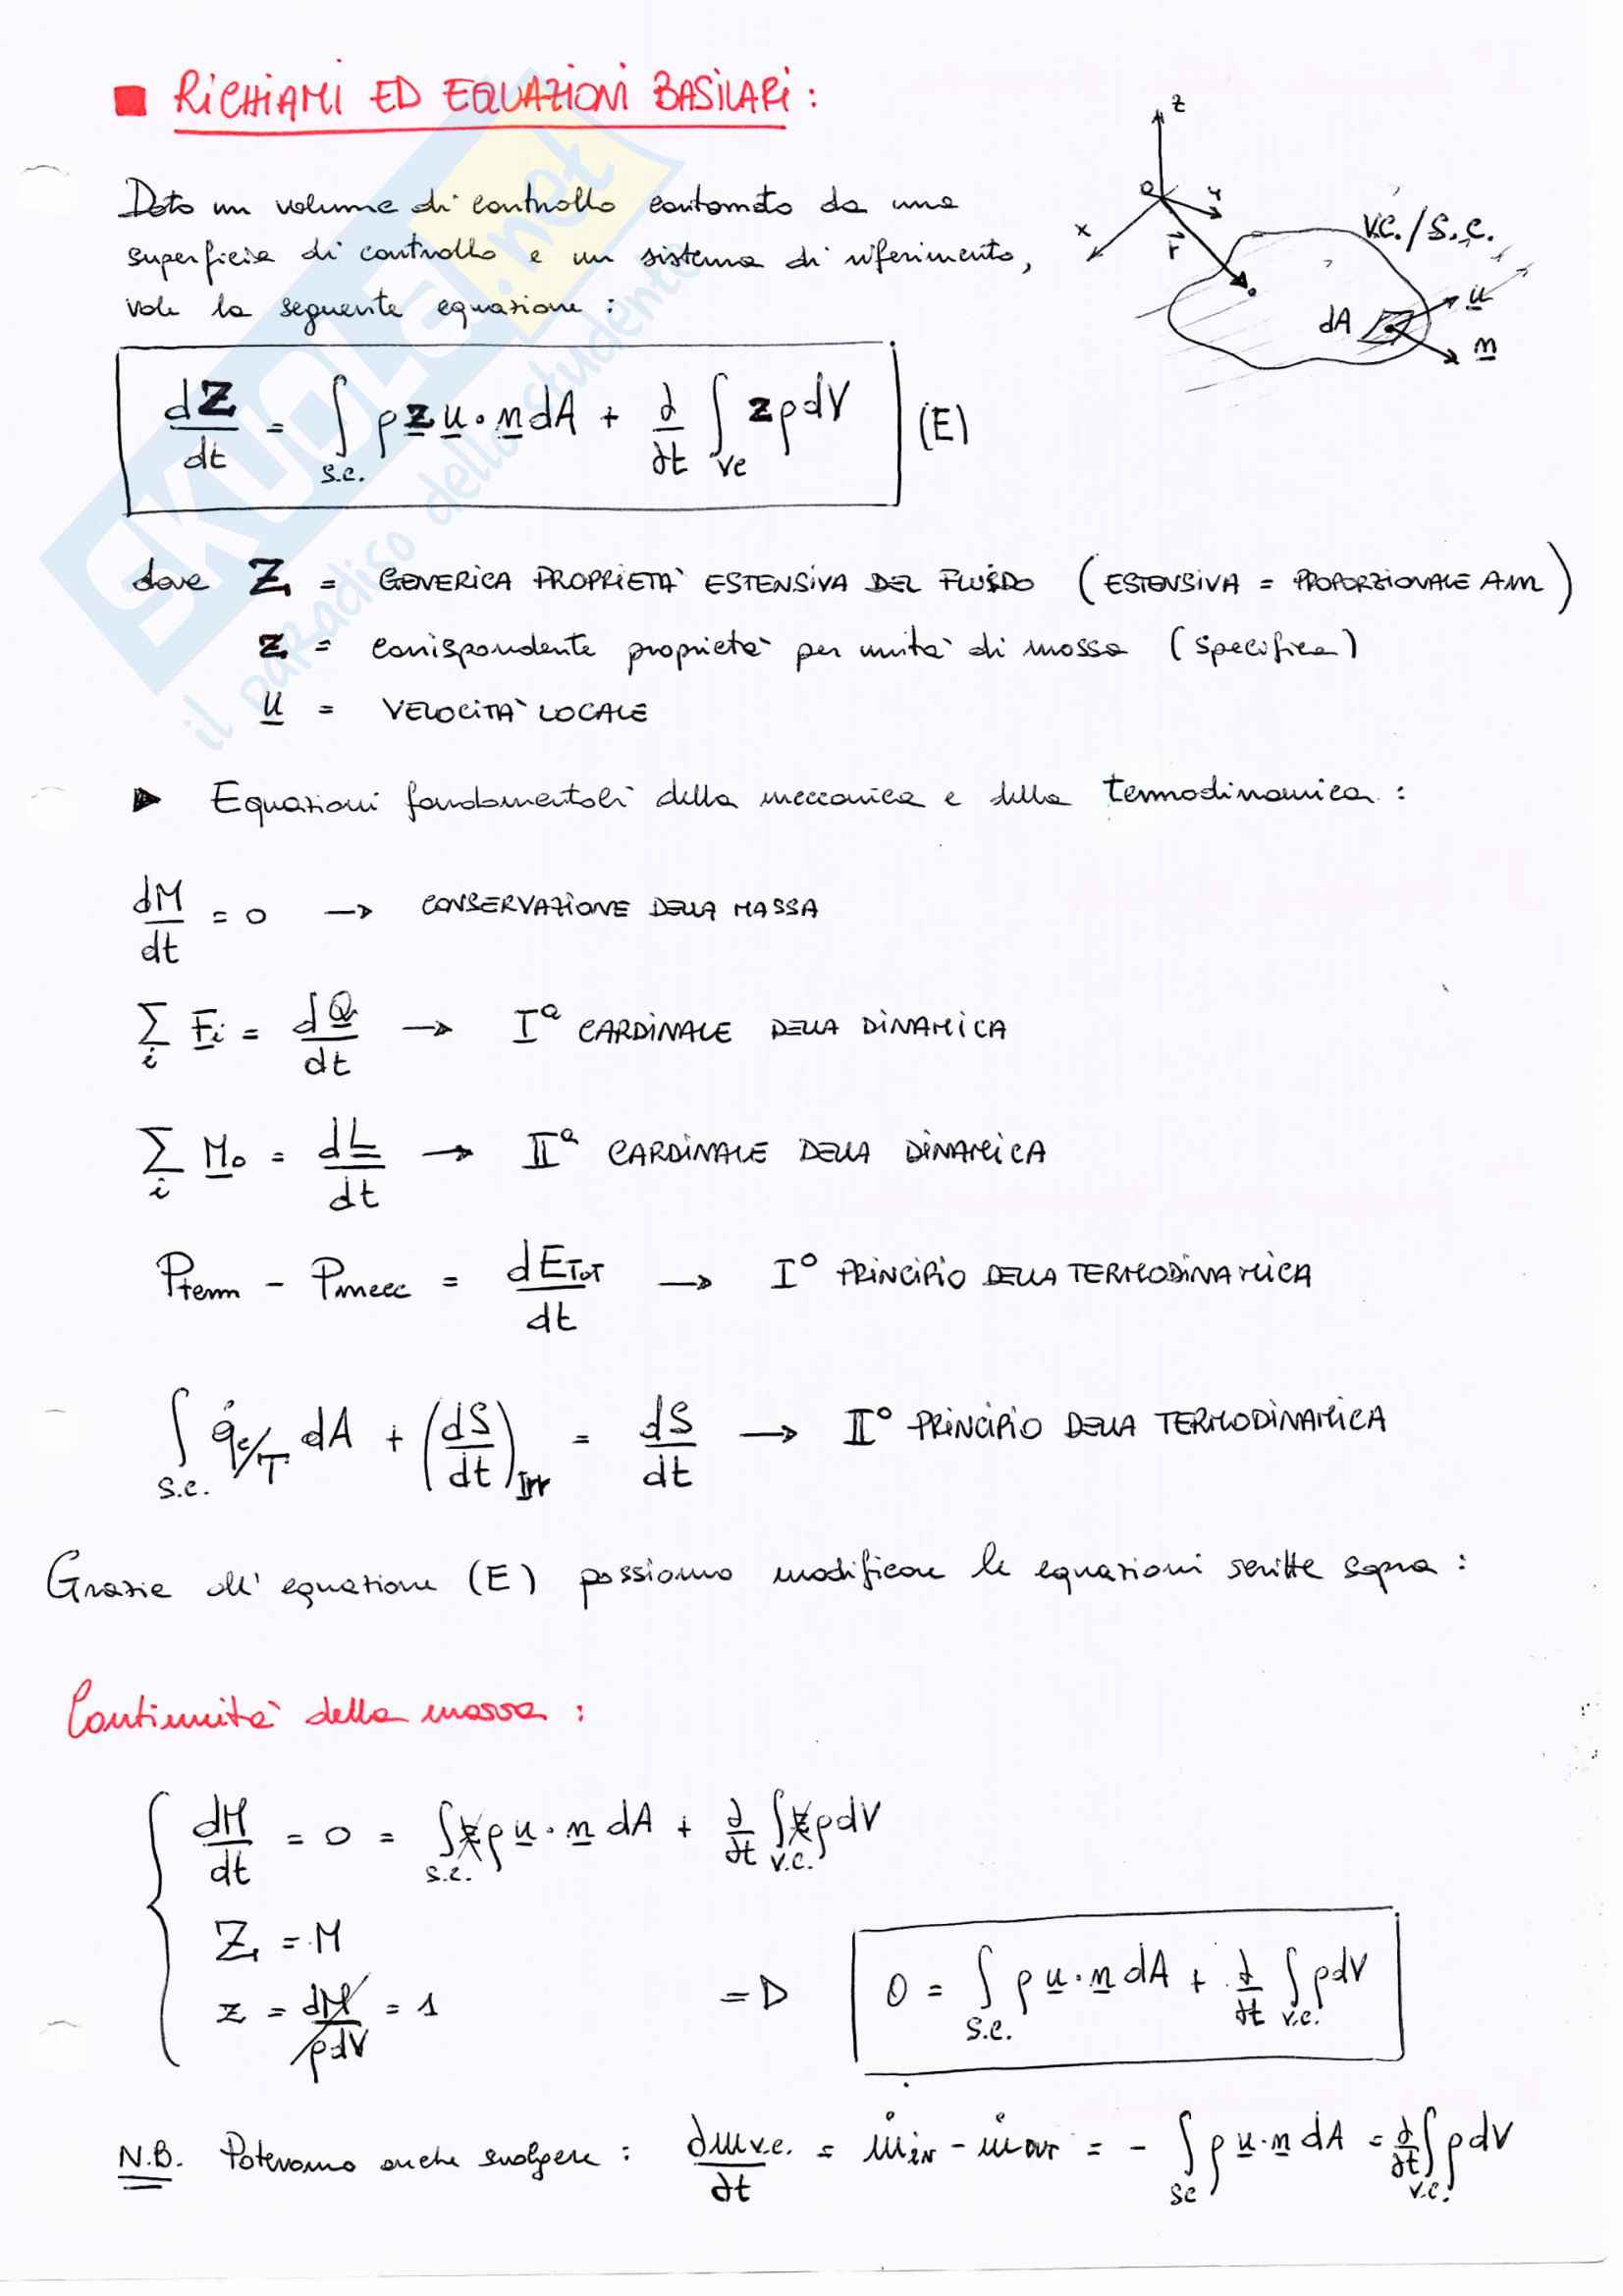 ■ RICHIAMI ED EQUAZIONI BASILARI :
Dato un volume di controllo contornato da una
superficie di controllo e un sistema di riferimento,
vale la seguente equazione :
z
O
y
x
r⃗
V.C. / S.C.
dA
u
n
dZ/dt = ∫_{S.C.} ρ z u · n dA + ∂/∂t ∫_{VC} z ρ dV (E)
dove Z = GENERICA PROPRIETÀ ESTENSIVA DEL FLUIDO (ESTENSIVA = PROPORZIONALE A m)
z = corrispondente proprietà per unità di massa (specifica)
u = VELOCITÀ LOCALE
▶ Equazioni fondamentali della meccanica e della termodinamica :
dM/dt = 0 → CONSERVAZIONE DELLA MASSA
∑_i F_i = dQ/dt → Iª CARDINALE DELLA DINAMICA
∑_i M_o = dL/dt → IIª CARDINALE DELLA DINAMICA
P_term - P_mecc = dE_TOT/dt → I° PRINCIPIO DELLA TERMODINAMICA
∫_{S.C.} q̇_e/T dA + (dS/dt)_Irr = dS/dt → II° PRINCIPIO DELLA TERMODINAMICA
Grazie all' equazione (E) possiamo modificare le equazioni scritte sopra :
Continuità della massa :
dM/dt = 0 = ∫_{S.C.} z ρ u · n dA + ∂/∂t ∫_{V.C.} z ρ dV
Z = M
z = dM/ρdV = 1
=D 0 = ∫_{S.C.} ρ u · n dA + ∂/∂t ∫_{V.C.} ρ dV
N.B. Potevamo anche svolgere : ∂m_{V.C.}/∂t = ṁ_IN - ṁ_OUT = - ∫_{SC} ρ u · n dA = ∂/∂t ∫_{V.C.} ρ dV
SKUOLA.net
il paradiso dello studente